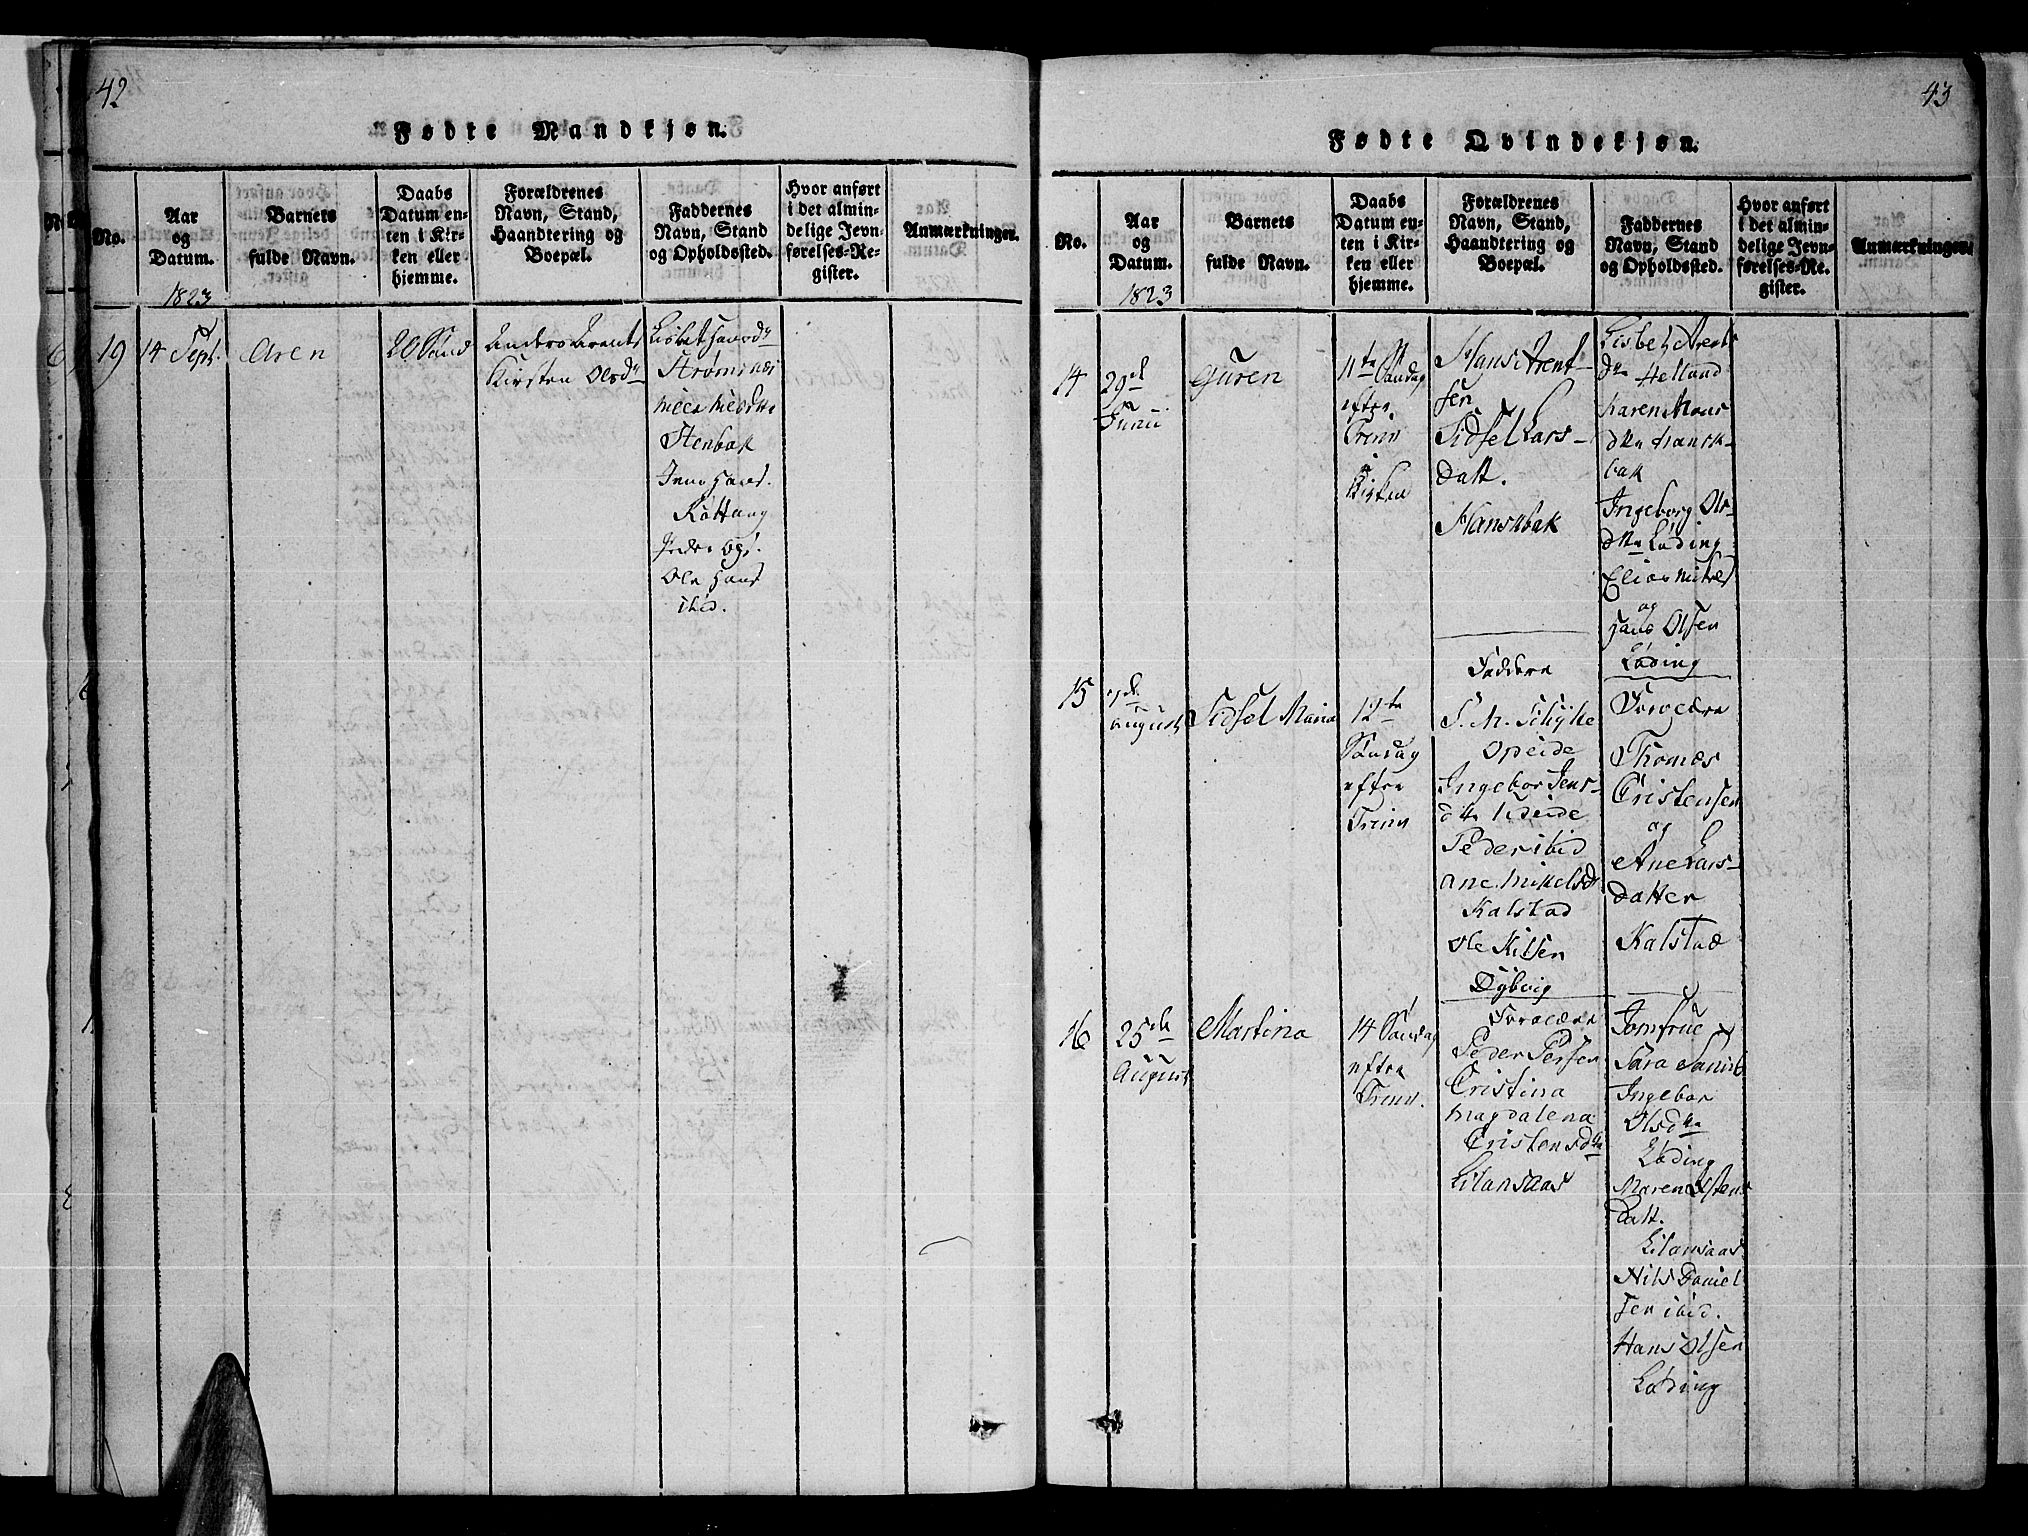 42
Fødte Mandkjøn.
No.
Aar
og
Datum.
1823
Barnets
fulde Navn.
Daabs
Datum en-
ten i Kir-
ken eller
hjemme.
Forældrenes
Navn, Stand,
Haandtering og
Boepæl.
Faddernes
Navn, Stand
og Opholdssted.
Hvor anført
i det almin-
delige Jevn-
førelses-Re-
gister.
Anmærkninger.
19
14 Sept.
Aren
20 Sønd
Anders Arents
Kirsten Olsdr
Lisbet Hansdr
Strømsnæs
Stenbak
Jens Hans.
Ole Hans
ibid.
43
Fødte Qvindekjøn.
No.
Aar
og
Datum.
1823
Barnets
fulde Navn.
Daabs
Datum en-
ten i Kir-
ken eller
hjemme.
Forældrenes
Navn, Stand,
Haandtering og
Boepæl.
Faddernes
Navn, Stand
og Opholdssted.
Hvor anført
i det almin-
delige Jevn-
førelses-Re-
gister.
Anmærkninger.
14
29de
Junii
Guren
11te Søndag
efter
Trinit
i
Kirken
Hans Arent-
sen
Sidsel Lars-
datt.
Hanskbak
Lisbeth Arents
dtr Helland
Karen Mons
dttr Hansk-
bak
Ingeborg Ols-
dttr Løding
Elias Mikels
og
Hans Olsen
Løding
15
August
Sidsel Maria
12te
Søndag
efter
Trinit
Faddere
S. M. Schytte
Opeide
Ingebor Jens-
dtr Opeide
Peder ibid
Ane Mikelsdr
Kalstad
Ole Nilsen
Dybvig
Forældre
Thomas
Cristensen
og
Ane Lars-
datter
Kalstad
16
25de
August
Martina
14 Søndag
efter
Trinit.
Forældre
Peder Persen
Cristina
Magdalena
Cristensdtr
Lilansaas
Jomfrue
Sara
Ingebor
Olsdttr
Løding
Maren
Datt.
Lilansaas
Nils Daniel
sen ibid.
Hans Olsen
Løding